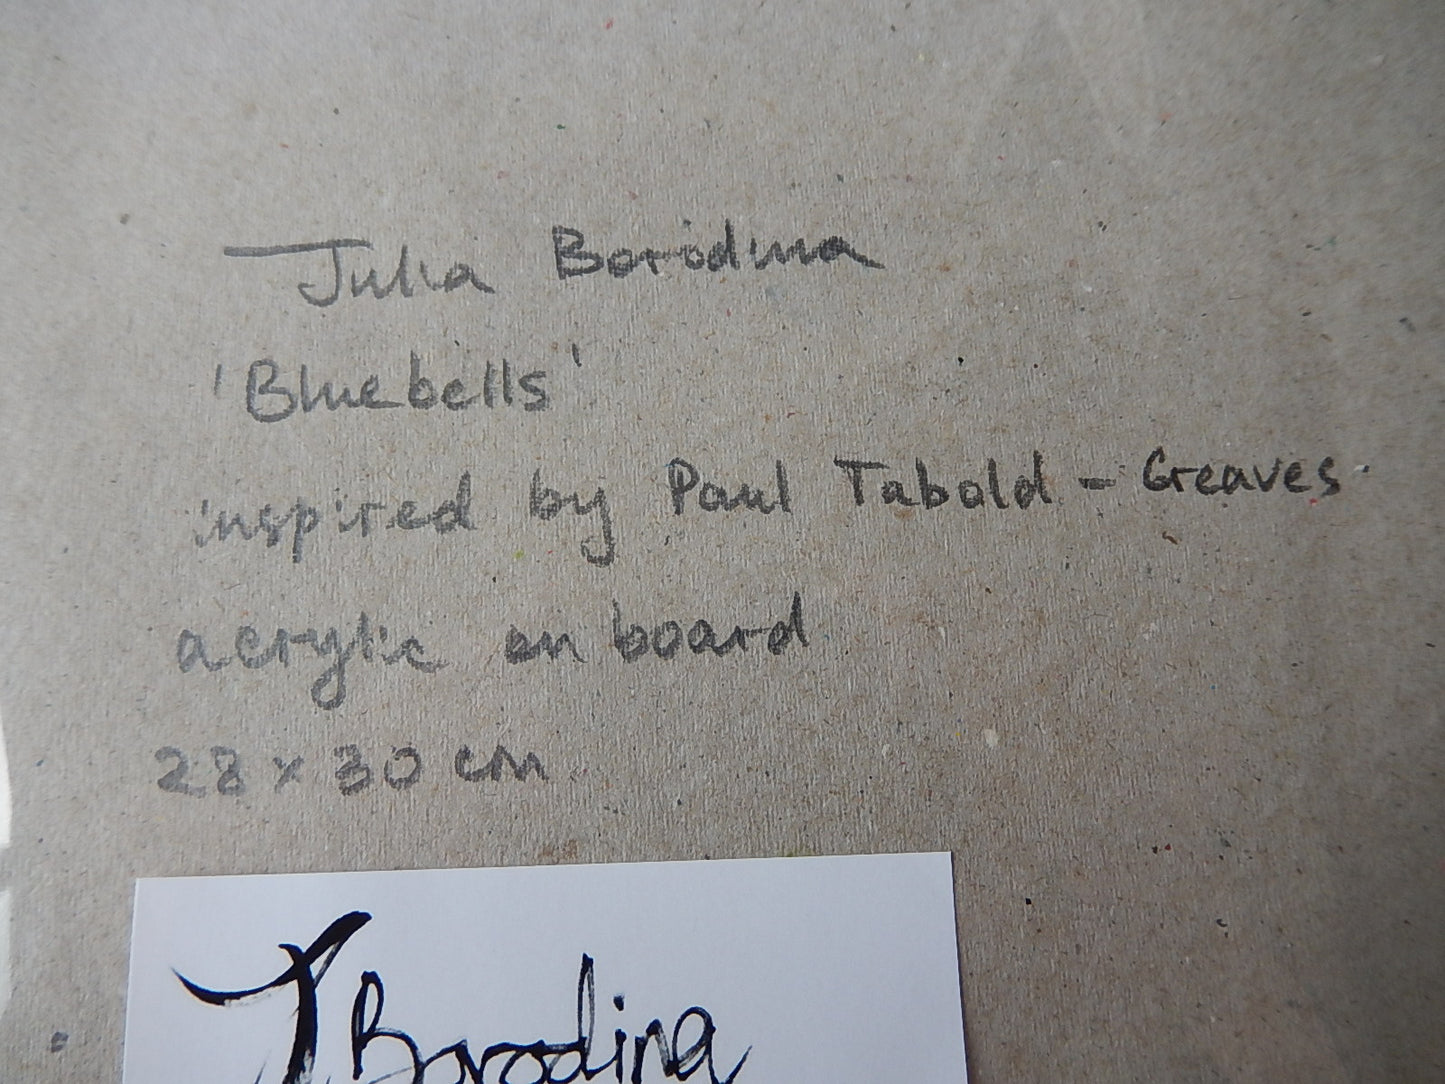 Julia Borodina
'Bluebells'
inspired by Paul Tabold - Greaves.
acrylic on board
28 x 30 cm
J Borodina